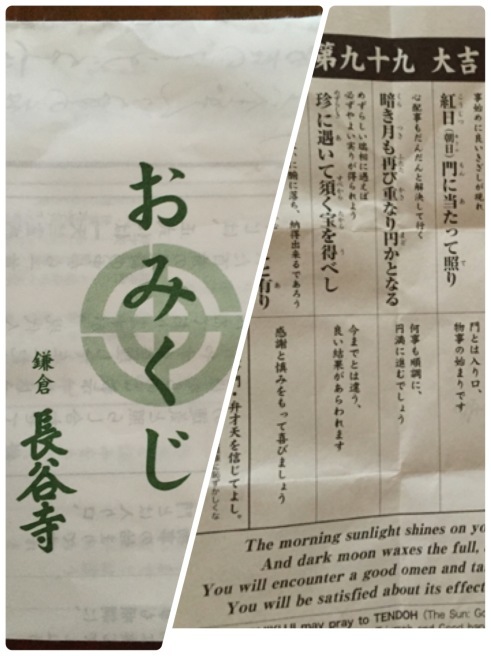 おみくじ
鎌倉 長谷寺
第九十九 大吉
事始めに良いきざしが現れ
紅日(朝日)門に当たって照り
心配事もだんだんと解決して行く
暗き月も再び重なり円かとなる
めずらしい瑞相に遇えば
必ずやよい実りが得られよう
珍に遇いて須く宝を得べし
に腑に落ちる、納得出来るであろう
と有り
門とは入り口、
物事の始まりです
何事も順調に、
円満に進むでしょう
今までとは違う、
良い結果があらわれます
感謝と慎みをもって喜びましょう
門・弁才天を信じてよし。
に恥ずかしくな
The morning sunlight shines on yo
And dark moon waxes the full,
You will encounter a good omen and ta
You will be satisfied about its effect
may pray to TENDOH (The Sun: Go